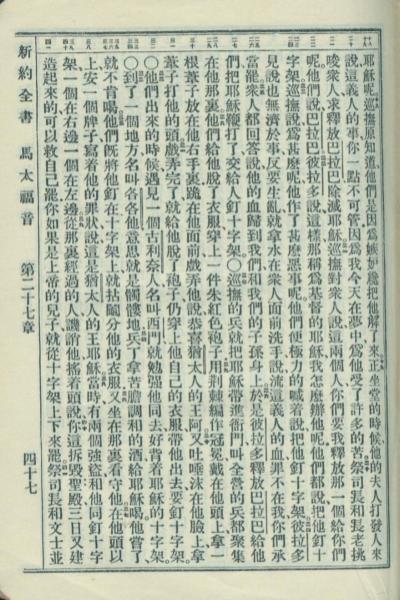 耶穌呢巡撫原知道他們是因為嫉妒纔把他解了來正坐堂的時候他的夫人打發人來
說這義人的事你一點不可管因為我今天在夢中為他受了許多的苦祭司長和長老挑
唆衆人求釋放巴拉巴除滅耶穌巡撫對衆人說這兩個人你們要我釋放那一個給你們
呢他們說巴拉巴彼拉多說這樣那稱為基督的耶穌我怎麼辦他呢他們都說把他釘十
字架巡撫說為甚麼呢他作了甚麼惡事呢他們便極力的喊着說把他釘十字架彼拉多
見說也無濟於事反要生亂就拿水在衆人面前洗手說流這義人的血罪不在我你們承
當罷衆人都回答說他的血歸到我們和我們的子孫身上於是彼拉多釋放巴拉巴給他
們把耶穌鞭打了交給人釘十字架〇巡撫的兵就把耶穌帶進衙門叫全營的兵都聚集
在他那裏他們給他脫了衣服穿上一件朱紅色袍子用荆棘編作冠冕戴在他頭上拿一
根葦子放在他右手裏跪在他面前戲弄他說恭喜猶太人的王阿又吐唾沫在他臉上拿
葦子打他的頭戲弄完了就給他脫了袍子仍穿上他自己的衣服帶他出去要釘十字架
〇他們出來的時候遇見一個古利奈人名叫西門就勉强他同去好背着耶穌的十字架
〇到了一個地方名叫各各他意思就是髑髏地兵丁拿苦膽調和的酒給耶穌喝他嘗了
就不肯喝他們旣將他釘在十字架上就拈鬮分他的衣服又坐在那裏看守他在他頭以
上安一個牌子寫着他的罪狀說這是猶太人的王耶穌當時有兩個強盜和他同釘十字
架一個在右邊一個在左邊從那裏經過的人譭謗他搖着頭說你這拆毀聖殿三日又建
造起來的可以救自己罷你如果是上帝的兒子就從十字架上下來罷祭司長和文士並
新約全書 馬太福音 第二十七章 四十七